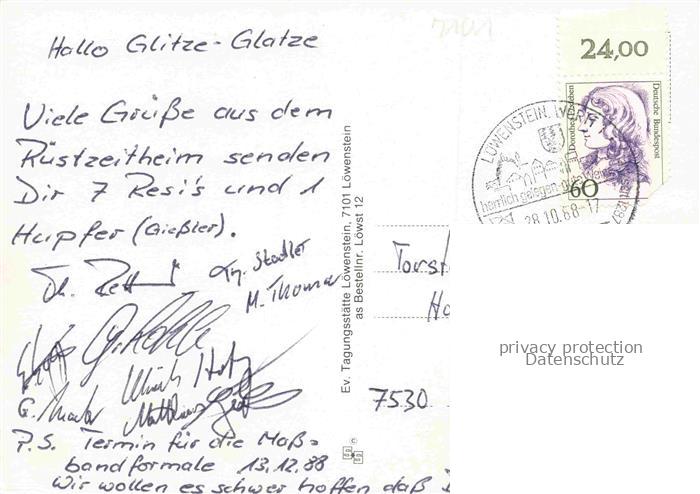 Hallo Glitze-Glatze
Viele Grüße aus dem
Rüstzeitheim senden
Dir 7 Resi's und 1
Hupfer (Gießler).
Th.
Stadler
M. Thoma
Ulrich
G.
Matthias
P.S. Termin für die Maß=
bandformale 13.12.88
Wir wollen es schwer hoffen daß
Ev. Tagungsstätte Löwenstein, 7101 Löwenstein
as Bestellnr. Löwst 12
7101
24,00
Dorothea Erxleben
Deutsche Bundespost
60
LÖWENSTEIN, WÜRTT
herrlich gelegen
28.10.88-17
Torst
Ho
7530
privacy protection
Datenschutz